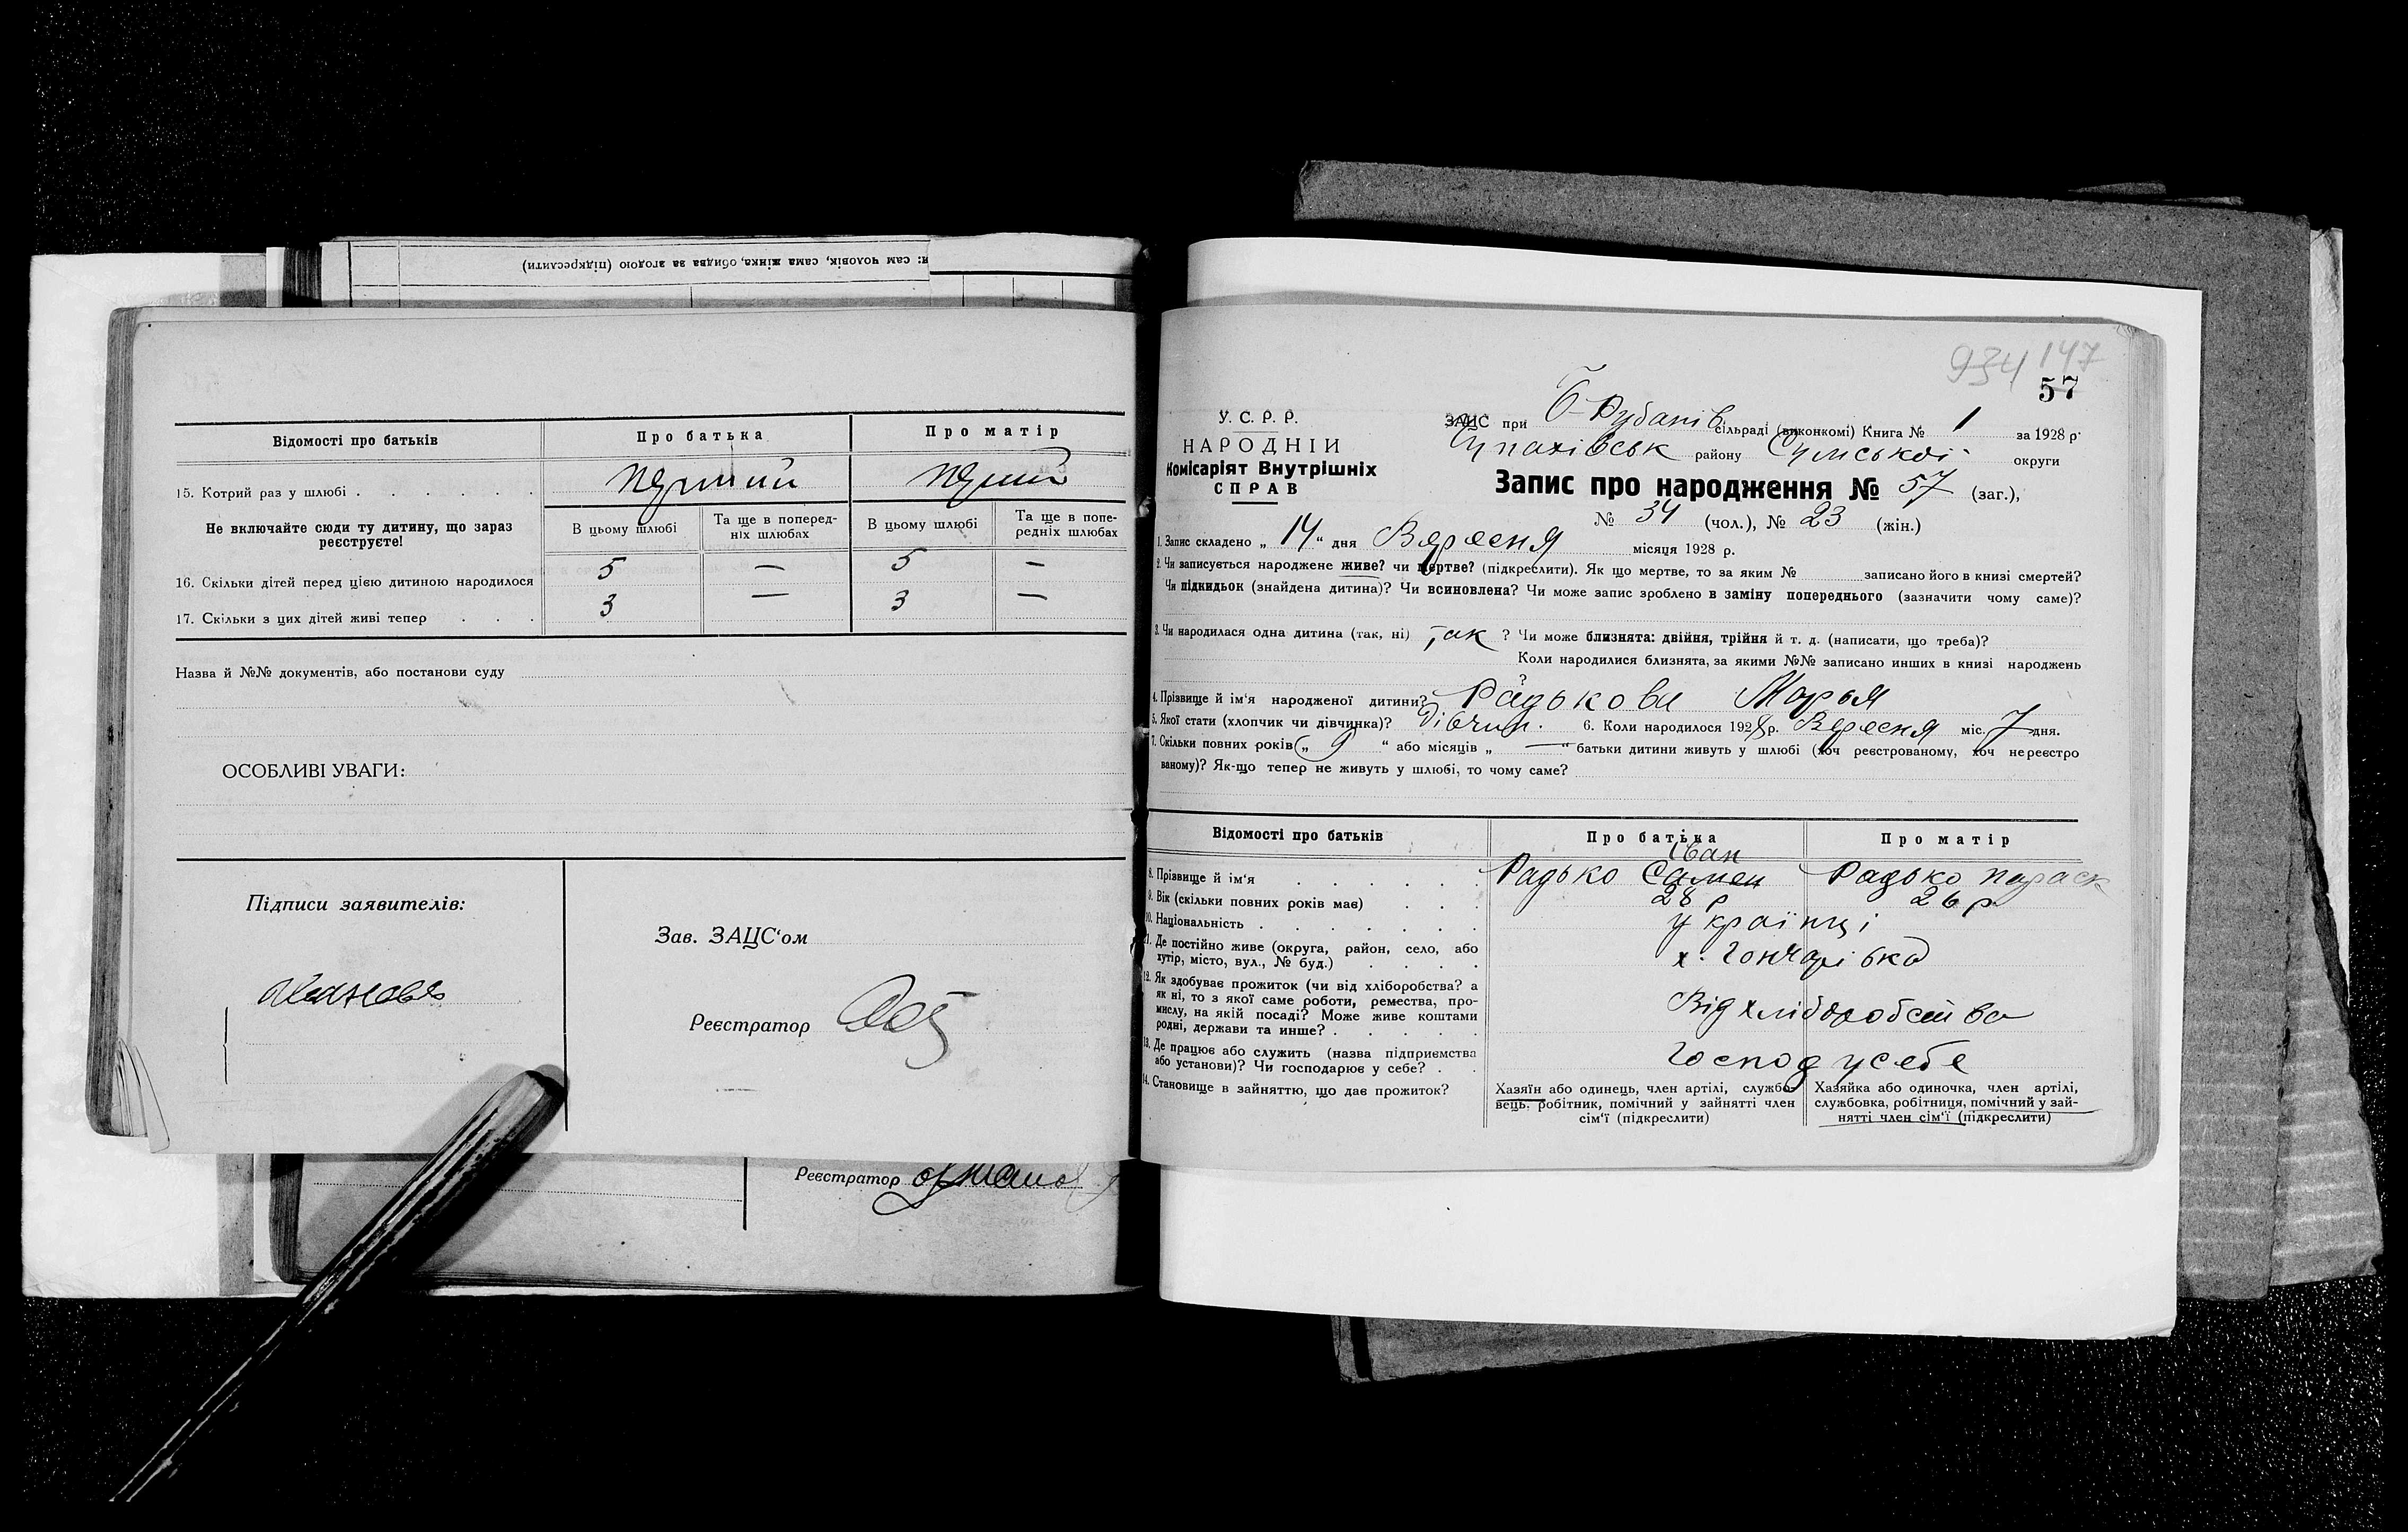 и: сам чоловік, сама жінка, обидва за згодою (підкреслити)
Відомості про батьків
Про батька
Про матір
15. Котрий раз у шлюбі
перший
перший
Не включайте сюди ту дитину, що зараз реєструєте!
В цьому шлюбі
Та ще в попередніх шлюбах
В цьому шлюбі
Та ще в попередніх шлюбах
16. Скільки дітей перед цією дитиною народилося
5 — 5 —
17. Скільки з цих дітей живі тепер
3 — 3 —
Назва й №№ документів, або постанови суду
ОСОБЛИВІ УВАГИ:
Підписи заявителів:
Зав. ЗАЦС'ом
Реєстратор
Реєстратор
934 147
57
У. С. Р. Р.
НАРОДНІЙ
Комісаріят Внутрішніх
СПРАВ
ЗАЦС при Б-Рубанів сільраді (виконкомі) Книга № 1 за 1928 р.
району Сумської округи
Запис про народження № 57 (заг.),
№ 34 (чол.), № 23 (жін.)
1. Запис складено „14“ дня Вересня місяця 1928 р.
2. Чи записується народжене живе? чи мертве? (підкреслити). Як що мертве, то за яким № записано його в книзі смертей?
Чи підкидьок (знайдена дитина)? Чи всиновлена? Чи може запис зроблено в заміну попереднього (зазначити чому саме)?
3. Чи народилася одна дитина (так, ні) так ? Чи може близнята: двійня, трійня й т. д. (написати, що треба)?
Коли народилися близнята, за якими №№ записано инших в книзі народжень
?
4. Прізвище й ім'я народженої дитини? Радькова Марья
5. Якої стати (хлопчик чи дівчинка)? дівчин. 6. Коли народилося 1928 р. Вересня міс. 7 дня.
7. Скільки повних років („ 9 “ або місяців „ — “ батьки дитини живуть у шлюбі (хоч реєстрованому, хоч нереєстро
ваному)? Як-що тепер не живуть у шлюбі, то чому саме?
Відомості про батьків
Про батька
Про матір
Іван
8. Прізвище й ім'я
Радько Самен
Радько Параск
9. Вік (скільки повних років має)
28 р
26 р.
10. Національність
українці
11. Де постійно живе (округа, район, село, або
хутір, місто, вул., № буд.)
х. Гончарівка
12. Як здобуває прожиток (чи від хліборобства? а
як ні, то з якої саме роботи, ремества, про-
мислу, на якій посаді? Може живе коштами
родні, держави та инше?
Від хліборобства
13. Де працює або служить (назва підприємства
або установи)? Чи господарює у себе?
Господ у себе
14. Становище в зайняттю, що дає прожиток?
Хазяїн або одинець, член артілі, службо-
вець, робітник, помічний у зайнятті член
сім'ї (підкреслити)
Хазяйка або одиночка, член артілі,
службовка, робітниця, помічний у зай-
нятті член сім'ї (підкреслити)